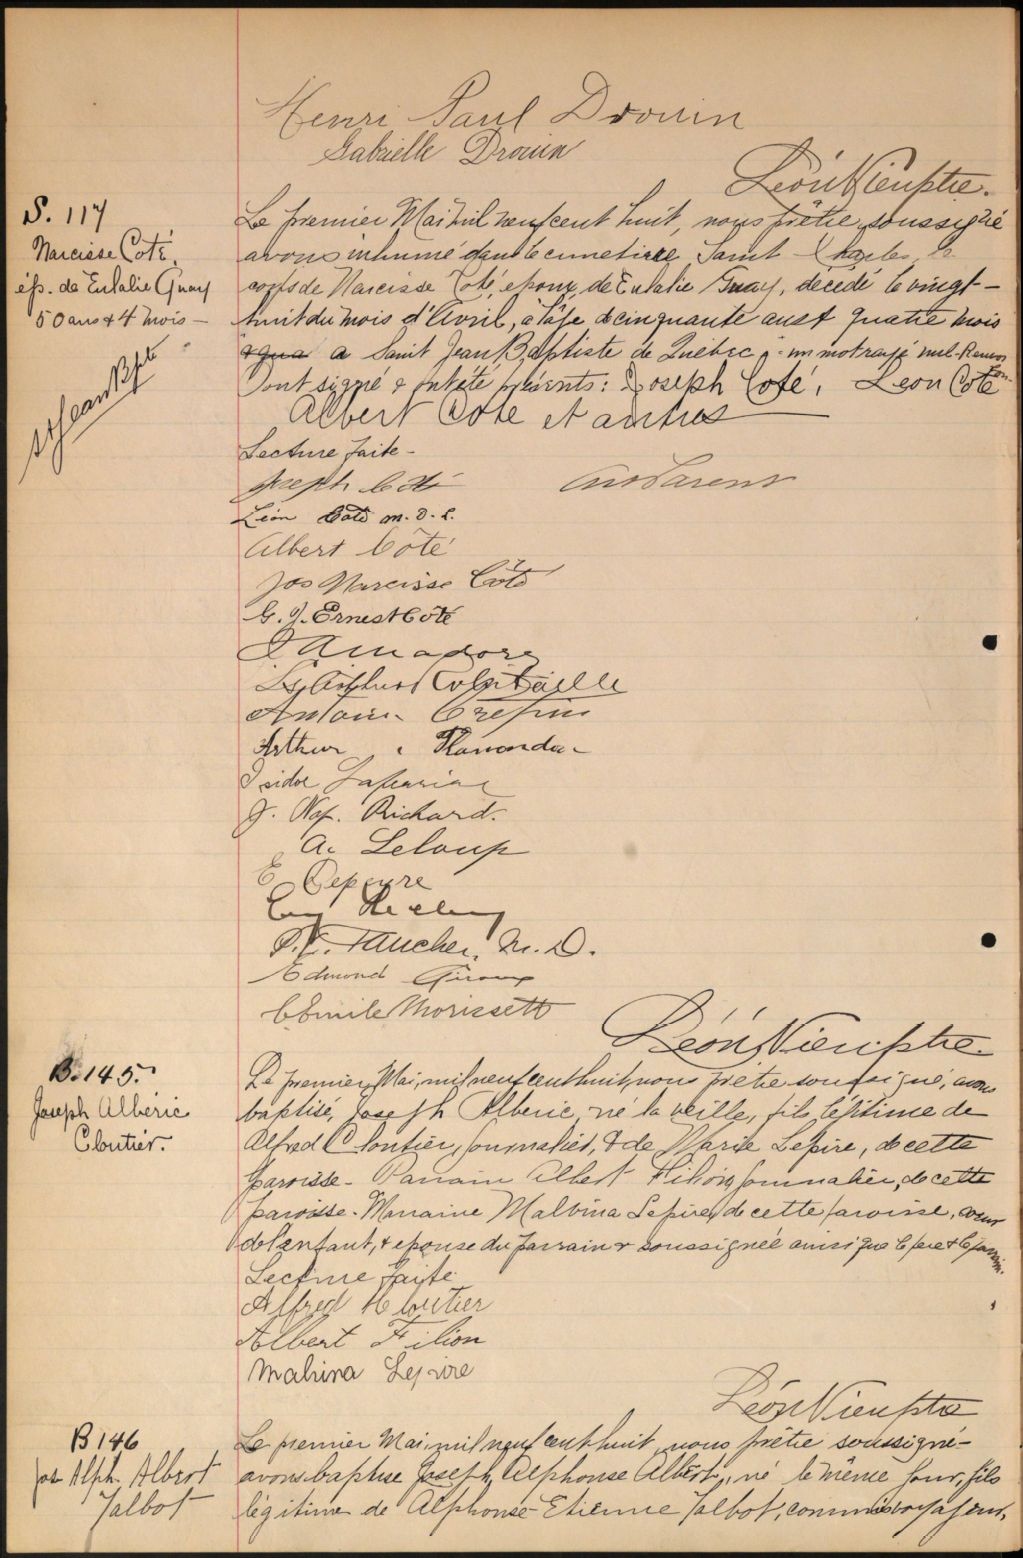 Henri Paul Drouin
Gabrielle Drouin
Léon Vien, ptre.
S. 117
Narcisse Coté,
ép. de Eulalie Guay
50 ans & 4 mois —
St Jean Bpte
Le premier Mai mil neuf cent huit, nous prêtre soussigné
avons inhumé dans le cimetière Saint Charles, le
corps de Narcisse Coté, epoux, de Eulalie Guay, décédé le vingt-
huit du mois d'Avril, à l'âge de cinquante ans & quatre mois
a Saint Jean Baptiste de Québec un mot rayé nul.
Ont signé & ont été présents: Joseph Coté, Léon Coté
Albert Coté et autres
Lecture faite —
Joseph Coté
Parent
Léon Coté
Albert Côté
Jos Narcisse Côté
G. J. Ernest Côté
Arthur
Antoine Crepin
Arthur
Isidor
J. Nap. Richard.
A. Leloup
E
Faucher, M.D.
Edmond Giroux
Emile Morissett
Léon Vien, ptre
B. 145.
Joseph Albéric
Cloutier.
Le premier Mai, mil neuf cent huit, nous prêtre soussigné, avons
baptisé, Joseph Alberic, né la veille, fils légitime de
Alfred Cloutier, journalier, & de Marie Lepire, de cette
paroisse — Parrain Albert Filion, journalier, de cette
paroisse. Marraine Malvina Lepire, de cette paroisse, sœur
de l'enfant, & epouse du parrain & soussignée ainsi que le père & le parrain.
Lecture faite
Alfred Cloutier
Albert Filion
Malvina Lepire
Léon Vien ptre
B 146
Jos Alph. Albert
Talbot
Le premier Mai, mil neuf cent huit, nous prêtre soussigné —
avons baptisé Joseph Alphonse Albert, né le même jour, fils
légitime de Alphonse-Etienne Talbot, commis voyageur,